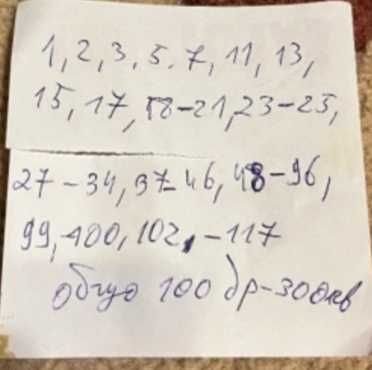 1, 2, 3, 5, 7, 11, 13,
15, 17, 18-21, 23-25,
27-34, 37-46, 48-96,
99,-100, 102,-117
общо 100 др-300лв